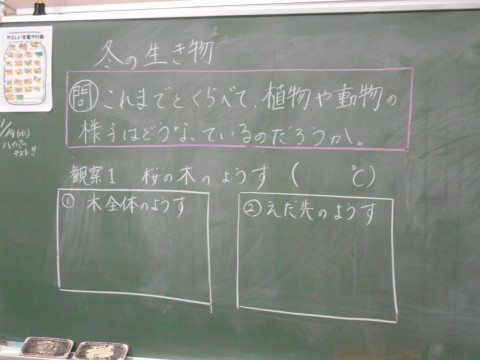 やさしい言葉や行動
冬の生き物
問 これまでとくらべて、植物や動物の
様子はどうなっているのだろうか。
観察1 桜の木のようす ( ℃)
① 木全体のようす
② えだ先のようす
(水)
ハイパー
テスト!!